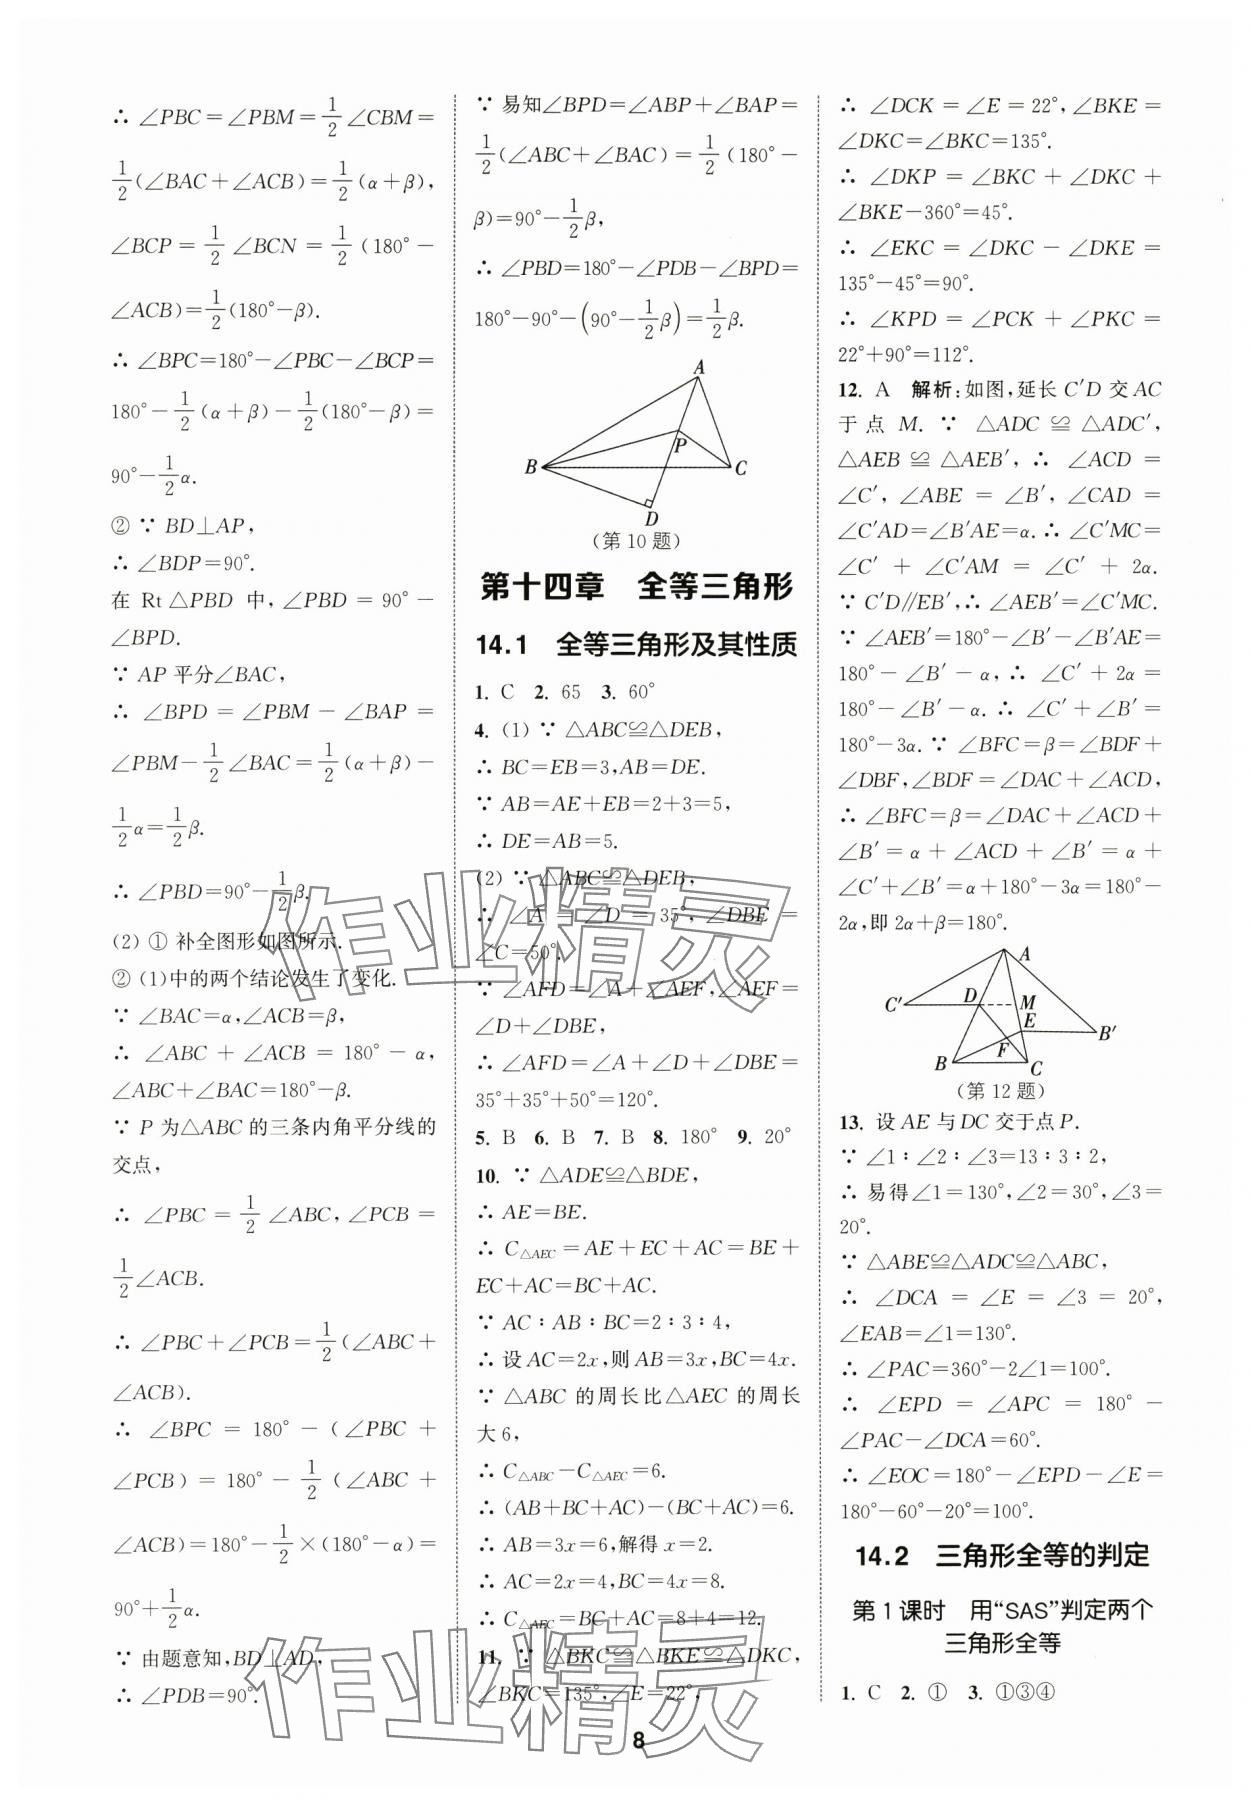 ∴ ∠PBC=∠PBM=1/2∠CBM=
1/2(∠BAC+∠ACB)=1/2(α+β),
∠BCP=1/2∠BCN=1/2(180°-
∠ACB)=1/2(180°-β).
∴ ∠BPC=180°-∠PBC-∠BCP=
180°-1/2(α+β)-1/2(180°-β)=
90°-1/2α.
② ∵ BD⊥AP,
∴ ∠BDP=90°.
在 Rt△PBD 中,∠PBD=90°-
∠BPD.
∵ AP平分∠BAC,
∴ ∠BPD=∠PBM-∠BAP=
∠PBM-1/2∠BAC=1/2(α+β)-
1/2α=1/2β.
∴ ∠PBD=90°-1/2β.
(2) ① 补全图形如图所示.
② (1)中的两个结论发生了变化.
∵ ∠BAC=α,∠ACB=β,
∴ ∠ABC+∠ACB=180°-α,
∠ABC+∠BAC=180°-β.
∵ P为△ABC的三条内角平分线的
交点,
∴ ∠PBC=1/2∠ABC,∠PCB=
1/2∠ACB.
∴ ∠PBC+∠PCB=1/2(∠ABC+
∠ACB).
∴ ∠BPC=180°-(∠PBC+
∠PCB)=180°-1/2(∠ABC+
∠ACB)=180°-1/2×(180°-α)=
90°+1/2α.
∵ 由题意知,BD⊥AD,
∴ ∠PDB=90°.
∵ 易知∠BPD=∠ABP+∠BAP=
1/2(∠ABC+∠BAC)=1/2(180°-
β)=90°-1/2β,
∴ ∠PBD=180°-∠PDB-∠BPD=
180°-90°-(90°-1/2β)=1/2β.
A
P
B
C
D
(第10题)
第十四章 全等三角形
14.1 全等三角形及其性质
1. C 2. 65 3. 60°
4. (1) ∵ △ABC≌△DEB,
∴ BC=EB=3,AB=DE.
∵ AB=AE+EB=2+3=5,
∴ DE=AB=5.
(2) ∵ △ABC≌△DEB,
∴ ∠A=∠D=35°,∠DBE=
∠C=50°.
∵ ∠AFD=∠A+∠AEF,∠AEF=
∠D+∠DBE,
∴ ∠AFD=∠A+∠D+∠DBE=
35°+35°+50°=120°.
5. B 6. B 7. B 8. 180° 9. 20°
10. ∵ △ADE≌△BDE,
∴ AE=BE.
∴ C△AEC=AE+EC+AC=BE+
EC+AC=BC+AC.
∵ AC∶AB∶BC=2∶3∶4,
∴ 设AC=2x,则AB=3x,BC=4x.
∵ △ABC的周长比△AEC的周长
大6,
∴ C△ABC-C△AEC=6.
∴ (AB+BC+AC)-(BC+AC)=6.
∴ AB=3x=6,解得x=2.
∴ AC=2x=4,BC=4x=8.
∴ C△AEC=BC+AC=8+4=12.
11. ∵ △BKC≌△BKE≌△DKC,
∠BKC=135°,∠E=22°,
∴ ∠DCK=∠E=22°,∠BKE=
∠DKC=∠BKC=135°.
∴ ∠DKP=∠BKC+∠DKC+
∠BKE-360°=45°.
∴ ∠EKC=∠DKC-∠DKE=
135°-45°=90°.
∴ ∠KPD=∠PCK+∠PKC=
22°+90°=112°.
12. A 解析:如图,延长C′D交AC
于点M.∵ △ADC≌△ADC′,
△AEB≌△AEB′,∴ ∠ACD=
∠C′,∠ABE=∠B′,∠CAD=
∠C′AD=∠B′AE=α.∴ ∠C′MC=
∠C′+∠C′AM=∠C′+2α.
∵ C′D∥EB′,∴ ∠AEB′=∠C′MC.
∵ ∠AEB′=180°-∠B′-∠B′AE=
180°-∠B′-α,∴ ∠C′+2α=
180°-∠B′-α.∴ ∠C′+∠B′=
180°-3α.∵ ∠BFC=β=∠BDF+
∠DBF,∠BDF=∠DAC+∠ACD,
∴ ∠BFC=β=∠DAC+∠ACD+
∠B′=α+∠ACD+∠B′=α+
∠C′+∠B′=α+180°-3α=180°-
2α,即2α+β=180°.
A
C′
D
M
E
B′
F
B
C
(第12题)
13. 设AE与DC交于点P.
∵ ∠1∶∠2∶∠3=13∶3∶2,
∴ 易得∠1=130°,∠2=30°,∠3=
20°.
∵ △ABE≌△ADC≌△ABC,
∴ ∠DCA=∠E=∠3=20°,
∠EAB=∠1=130°.
∴ ∠PAC=360°-2∠1=100°.
∴ ∠EPD=∠APC=180°-
∠PAC-∠DCA=60°.
∴ ∠EOC=180°-∠EPD-∠E=
180°-60°-20°=100°.
14.2 三角形全等的判定
第1课时 用“SAS”判定两个
三角形全等
1. C 2. ① 3. ①③④
8
作业精灵
作业精灵